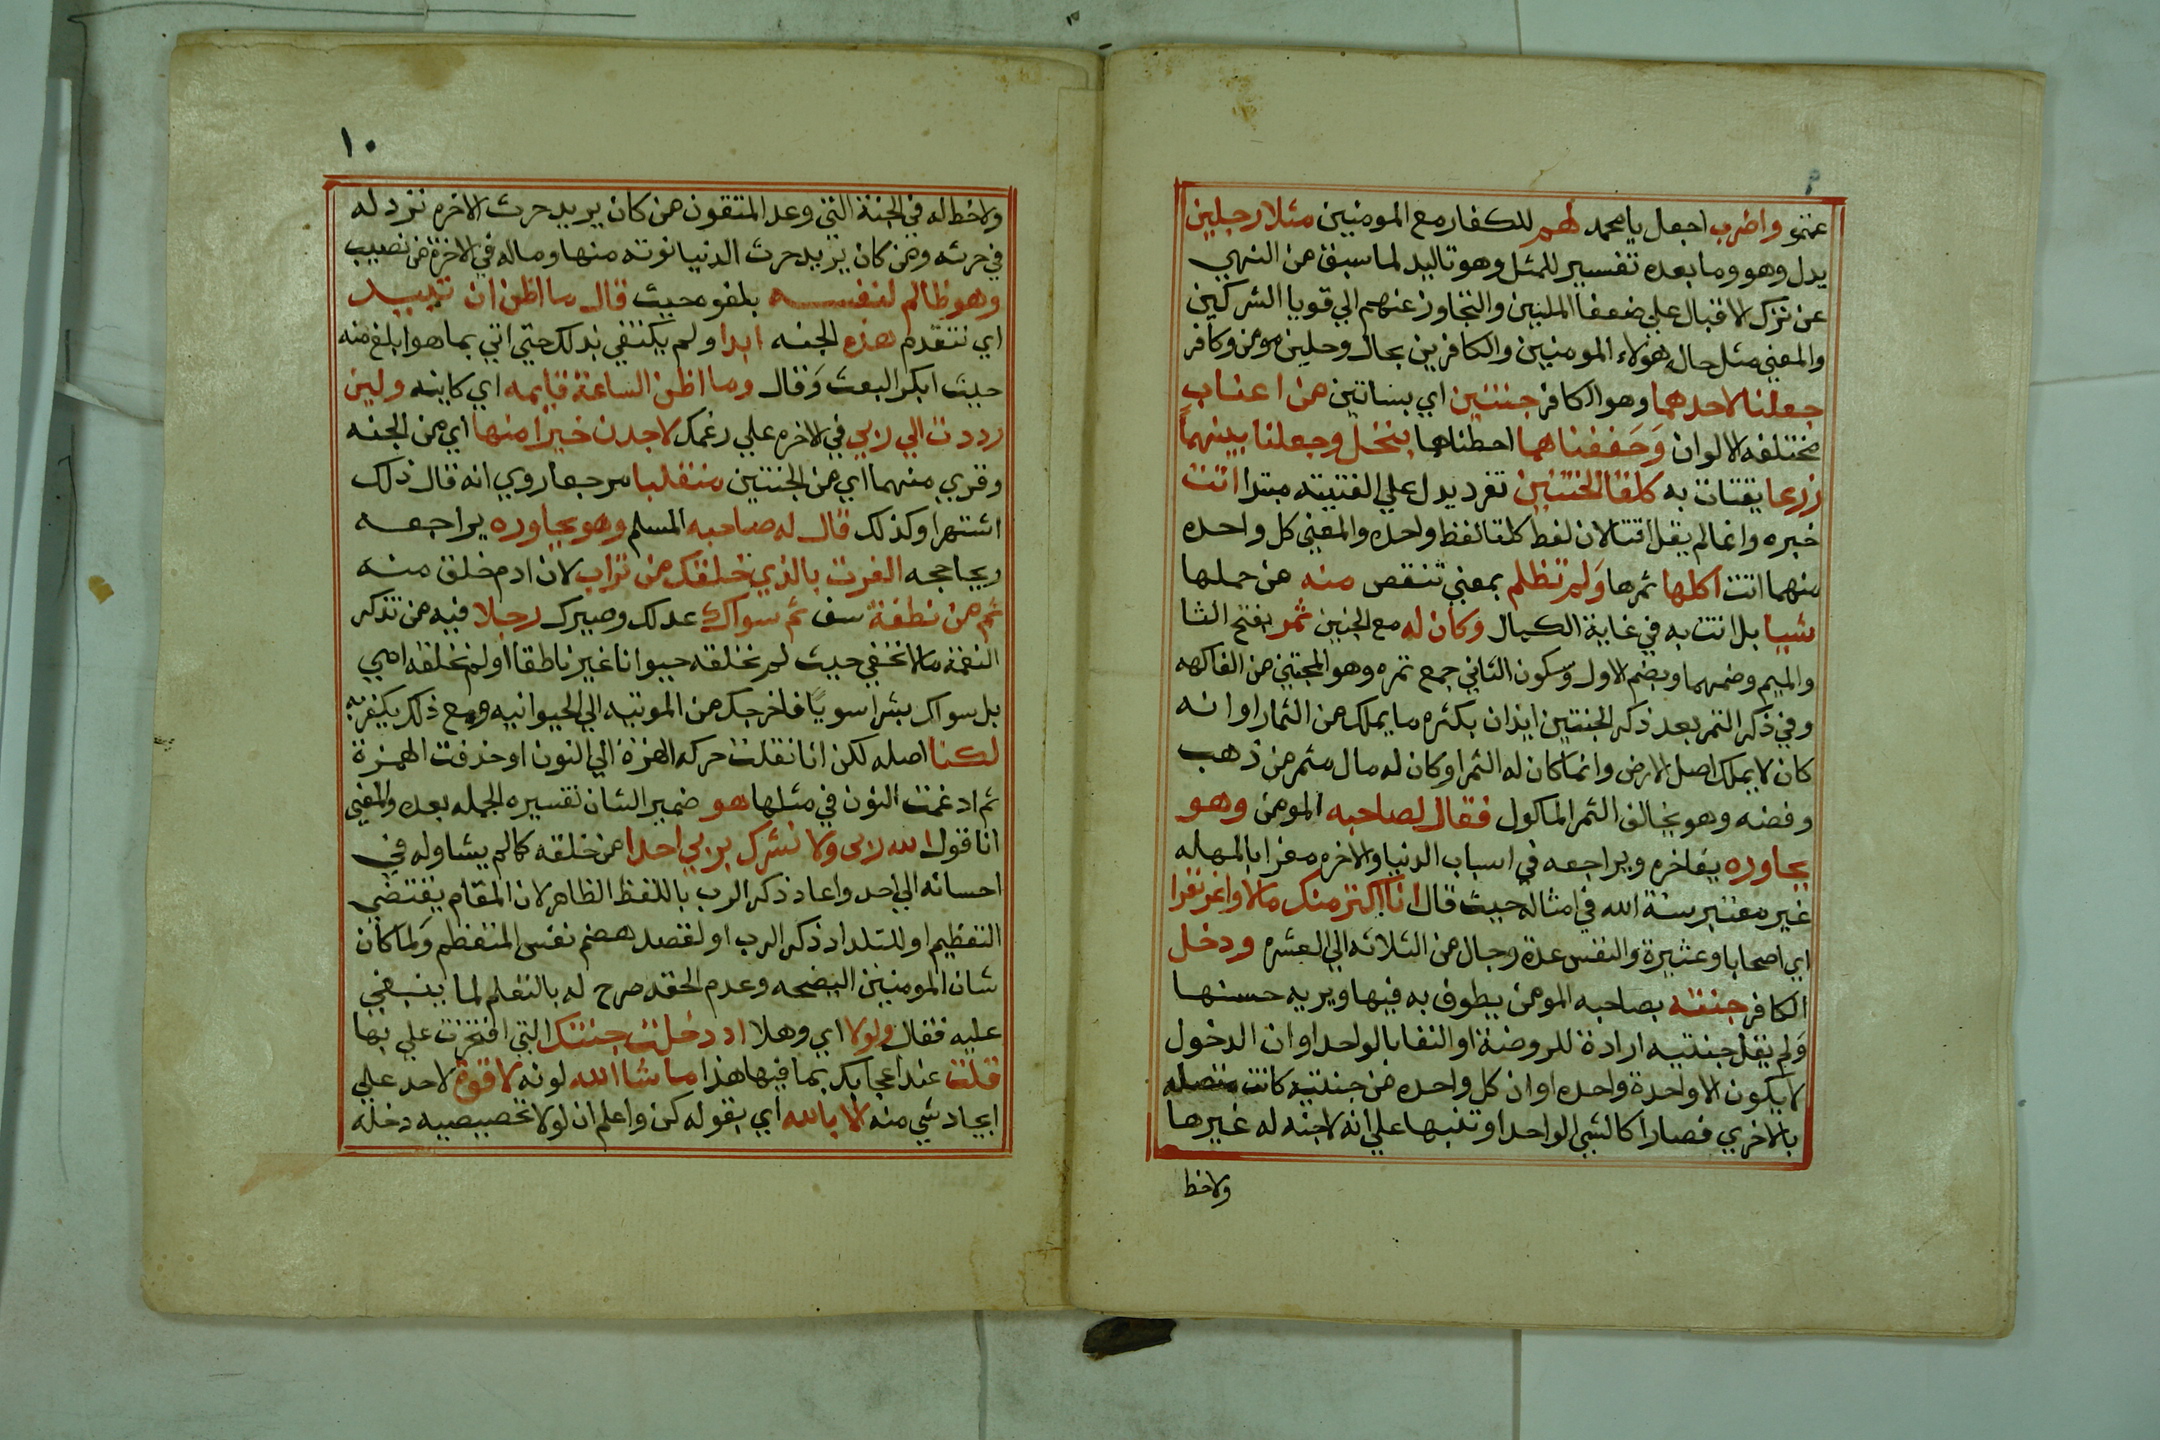 عنتمو واضرب اجعل يا محمد لهم للكفار مع المومنين مثلا رجلين
بدل وهو وما بعده تفسير للمثل وهو تاليد لما سبق من النهي
عن ترك الاقبال علي ضعفا الملبين والتجاوز عنهم الي قويا الشركين
والمعني مثل حال هولاء المومنين والكافرين بحال وحلين مومن وكافر
جعلنا لاحدهما وهو الكافر جنتين اي بساتين من اعناب
مختلفه الالوان وَحَففناهما احطناها بنخل وجعلنا بينهماً
زرعا يقتات به كلتا الجنتين تفرد يدل علي الفتيته مبتدا اتت
خبره وانما لم يقل اتتا لان لفظ كلتا لفظ واحده والمعني كل واحده
منهما اتت اكلها ثمرها وَلم تظلم بمعني تنقص منه من حملها
شيا بل اتت به في غاية الكمال وكان له مع الجنين ثمر بفتح الثا
والميم وضمهما وبضم الاول وسكون الثاني جمع تمره وهو المجتني من الفاكهه
وفي ذكر التمر بعد ذكر الجنتين ايذان بكثره ما يملك من الثمار اوانه
كان لا يملك اصل الارض وانما كان له الثمر او كان له مال مثمر من ذهب
وفضه وهو يخالف الثمر الماكول فقال لصاحبه المومن وهو
يحاوره يفاخره ويراجعه في اسباب الدنيا والاخره مغرا بالمهله
غير معتبر سنة الله في امثاله حيث قال انا اكثر منك مالا واعز نفرا
اي اصحابا وعشيرة والنفس عدة رجال من الثلاثه الي العشره ودخل
الكافر جنته بصاحبه المومن يطوف به فيها ويريه حسنها
وَلم يقل جنتيه ارادة للروضة او النفا بالواحد او ان الدخول
لا يكون الا واحدة واحده او ان كل واحده من جنتيه كانت متصله
بالاخري فصارا كالشي الواحد او تنبها علي انه لا جنه له غيرها
ولاخط
١٠
ولاخط له في الجنة التي وعد المتقون من كان يريد حرث الاخره نزد له
في حرثه ومن كان يريد حرث الدنيا نوته منها وماله في الاخرة من نصيب
وهو ظالم لنفسه بلفوه حيث قال ما اظن ان تبيد
اي تنقدم هذه الجنه ابدا ولم يكتفي بذلك حتي اتي بما هو ابلغ منه
حيث انكر البعث وَقال وما اظن الساعة قايمه اي كاينه ولين
رددت الي ربي في الاخره علي زعمك لاجدن خيرا منها اي من الجنه
وقري منهما اي من الجنتين منقلبا مرجعا روي انه قال ذلك
اشتهرا وكذلك قال له صاحبه المسلم وهو يحاوره يراجعه
ريحاججه اكفرت بالذي خلقك من تراب لان ادم خلق منه
ثم من نطفة سف ثم سواك عدلك وصيرك رجلا فيه من تذكر
النعمة ما لا تخفي حيث لم تخلقه حيوانا غير ناطقا او لم تخلقه امي
بل سواك بشرا سويًا فاخرجك من الموتيه الي الحيوانيه ومع ذلك يكفر به
لكنا اصله لكن انا نقلت حركه الهمزة الي النون او حذفت الهمزة
ثم ادغمت النون في مثلها هو ضمير الشان تفسيره الجمله بعده والمعني
انا قول الله ربي ولا نشرك بربي احدا من خلقه كالم يشاوله في
احسانه الي احد واعاد ذكر الرب باللفظ الظاهر لان المقام يقتضي
التعظيم او للتلداد ذكر الرب او لقصد هضم نفس المتعظم وَلما كان
شان المومنين النصحه وعدم الحقد صرح له بالتعلم لما ينبغي
عليه فقال ولولا اي وهلا اد دخلت جنتك التي افتخرت علي بها
قلت عند اعجابك بما فيها هذا ما شا الله لونه لا قوة لاحد علي
ايجاد شي منه الا بالله اي بقوله كن واعلم ان لولا تخصيصيه دخله